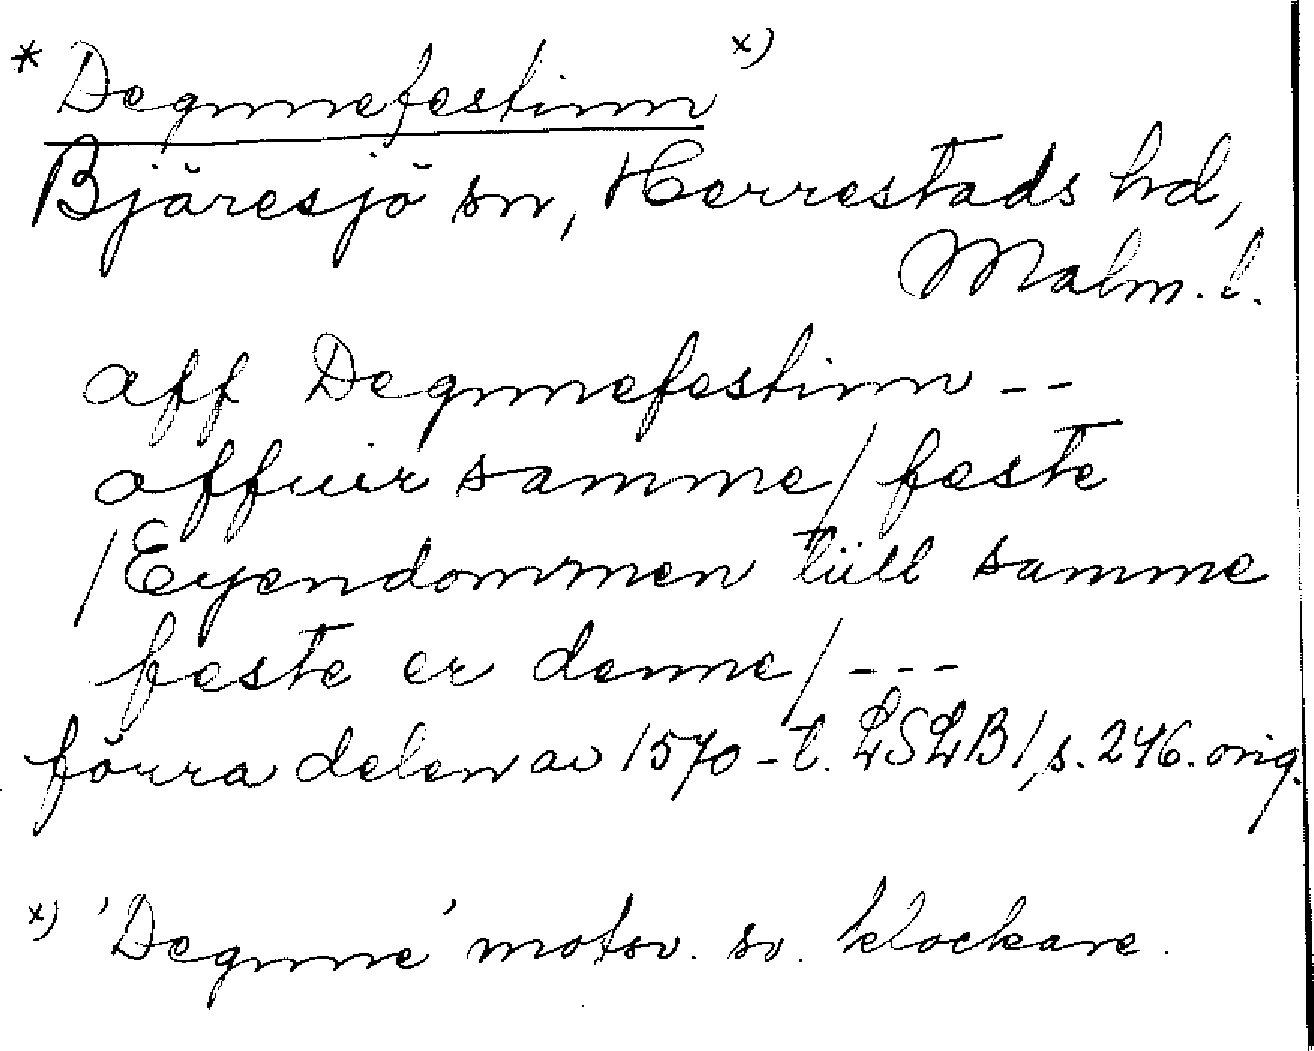 * Degnnefestinn x)
Bjäresjö sn, Herrestads hd,
Malm. l.
aff Degnnefestinn --
affuir samme / feste
/ Eyendommen tüll samme
feste er denne / ---
förra delen av 1570-t. LSLB 1, s. 246. orig.
x) 'Degnne' motsv. sv. klockare.